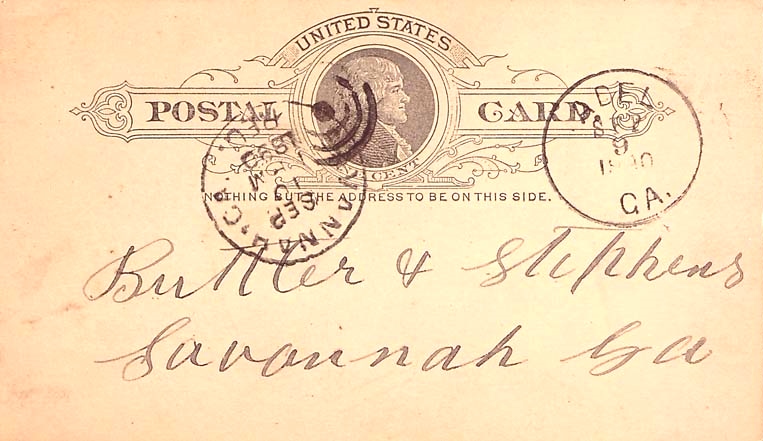 UNITED STATES
POSTAL CARD.
CENT
NOTHING BUT THE ADDRESS TO BE ON THIS SIDE.
SEP
9
GA.
SEP
REC'D.
Buttler & Stephens
Savannah Ga